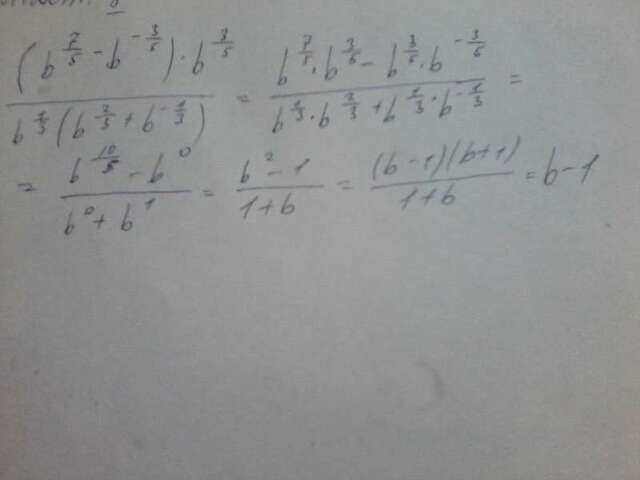 (b^{7/5} - b^{-3/5}) · b^{3/5} / b^{1/3}(b^{2/3} + b^{-1/3}) = b^{7/5} · b^{3/5} - b^{3/5} · b^{-3/5} / b^{1/3} · b^{2/3} + b^{1/3} · b^{-1/3} =
= b^{10/5} - b^0 / b^0 + b^1 = b^2 - 1 / 1 + b = (b-1)(b+1) / 1 + b = b-1